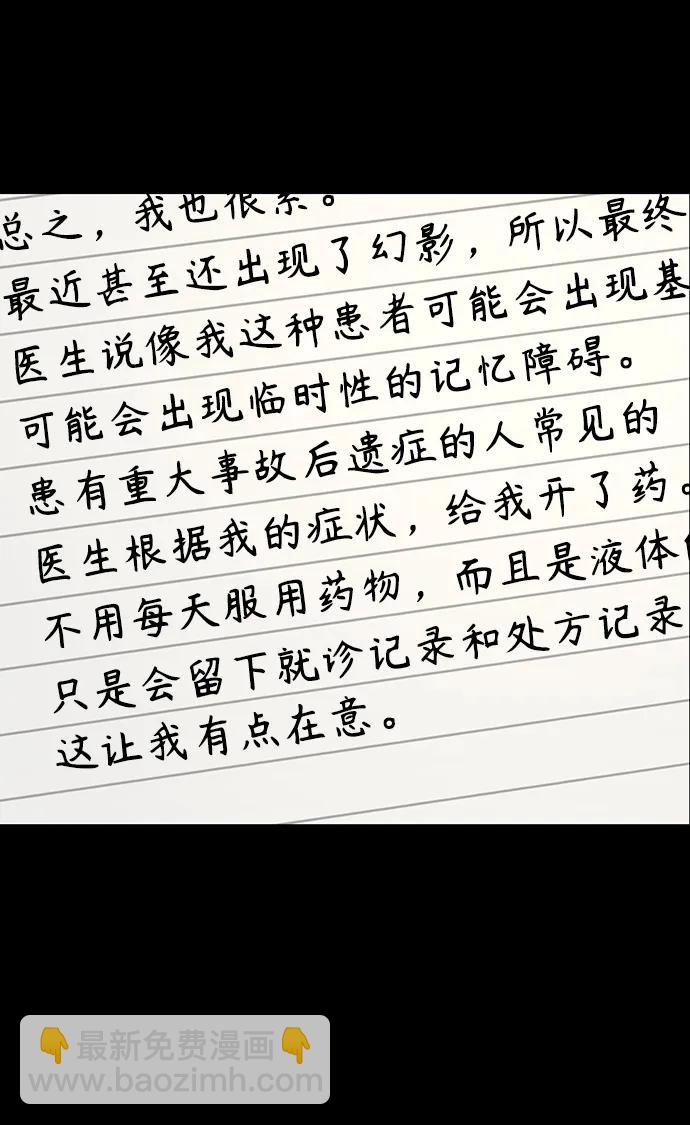 总之，我也很累。
最近甚至还出现了幻影，所以最终
医生说像我这种患者可能会出现基
可能会出现临时性的记忆障碍。
患有重大事故后遗症的人常见的
医生根据我的症状，给我开了药。
不用每天服用药物，而且是液体的
只是会留下就诊记录和处方记录
这让我有点在意。
👇最新免费漫画👇
www.baozimh.com